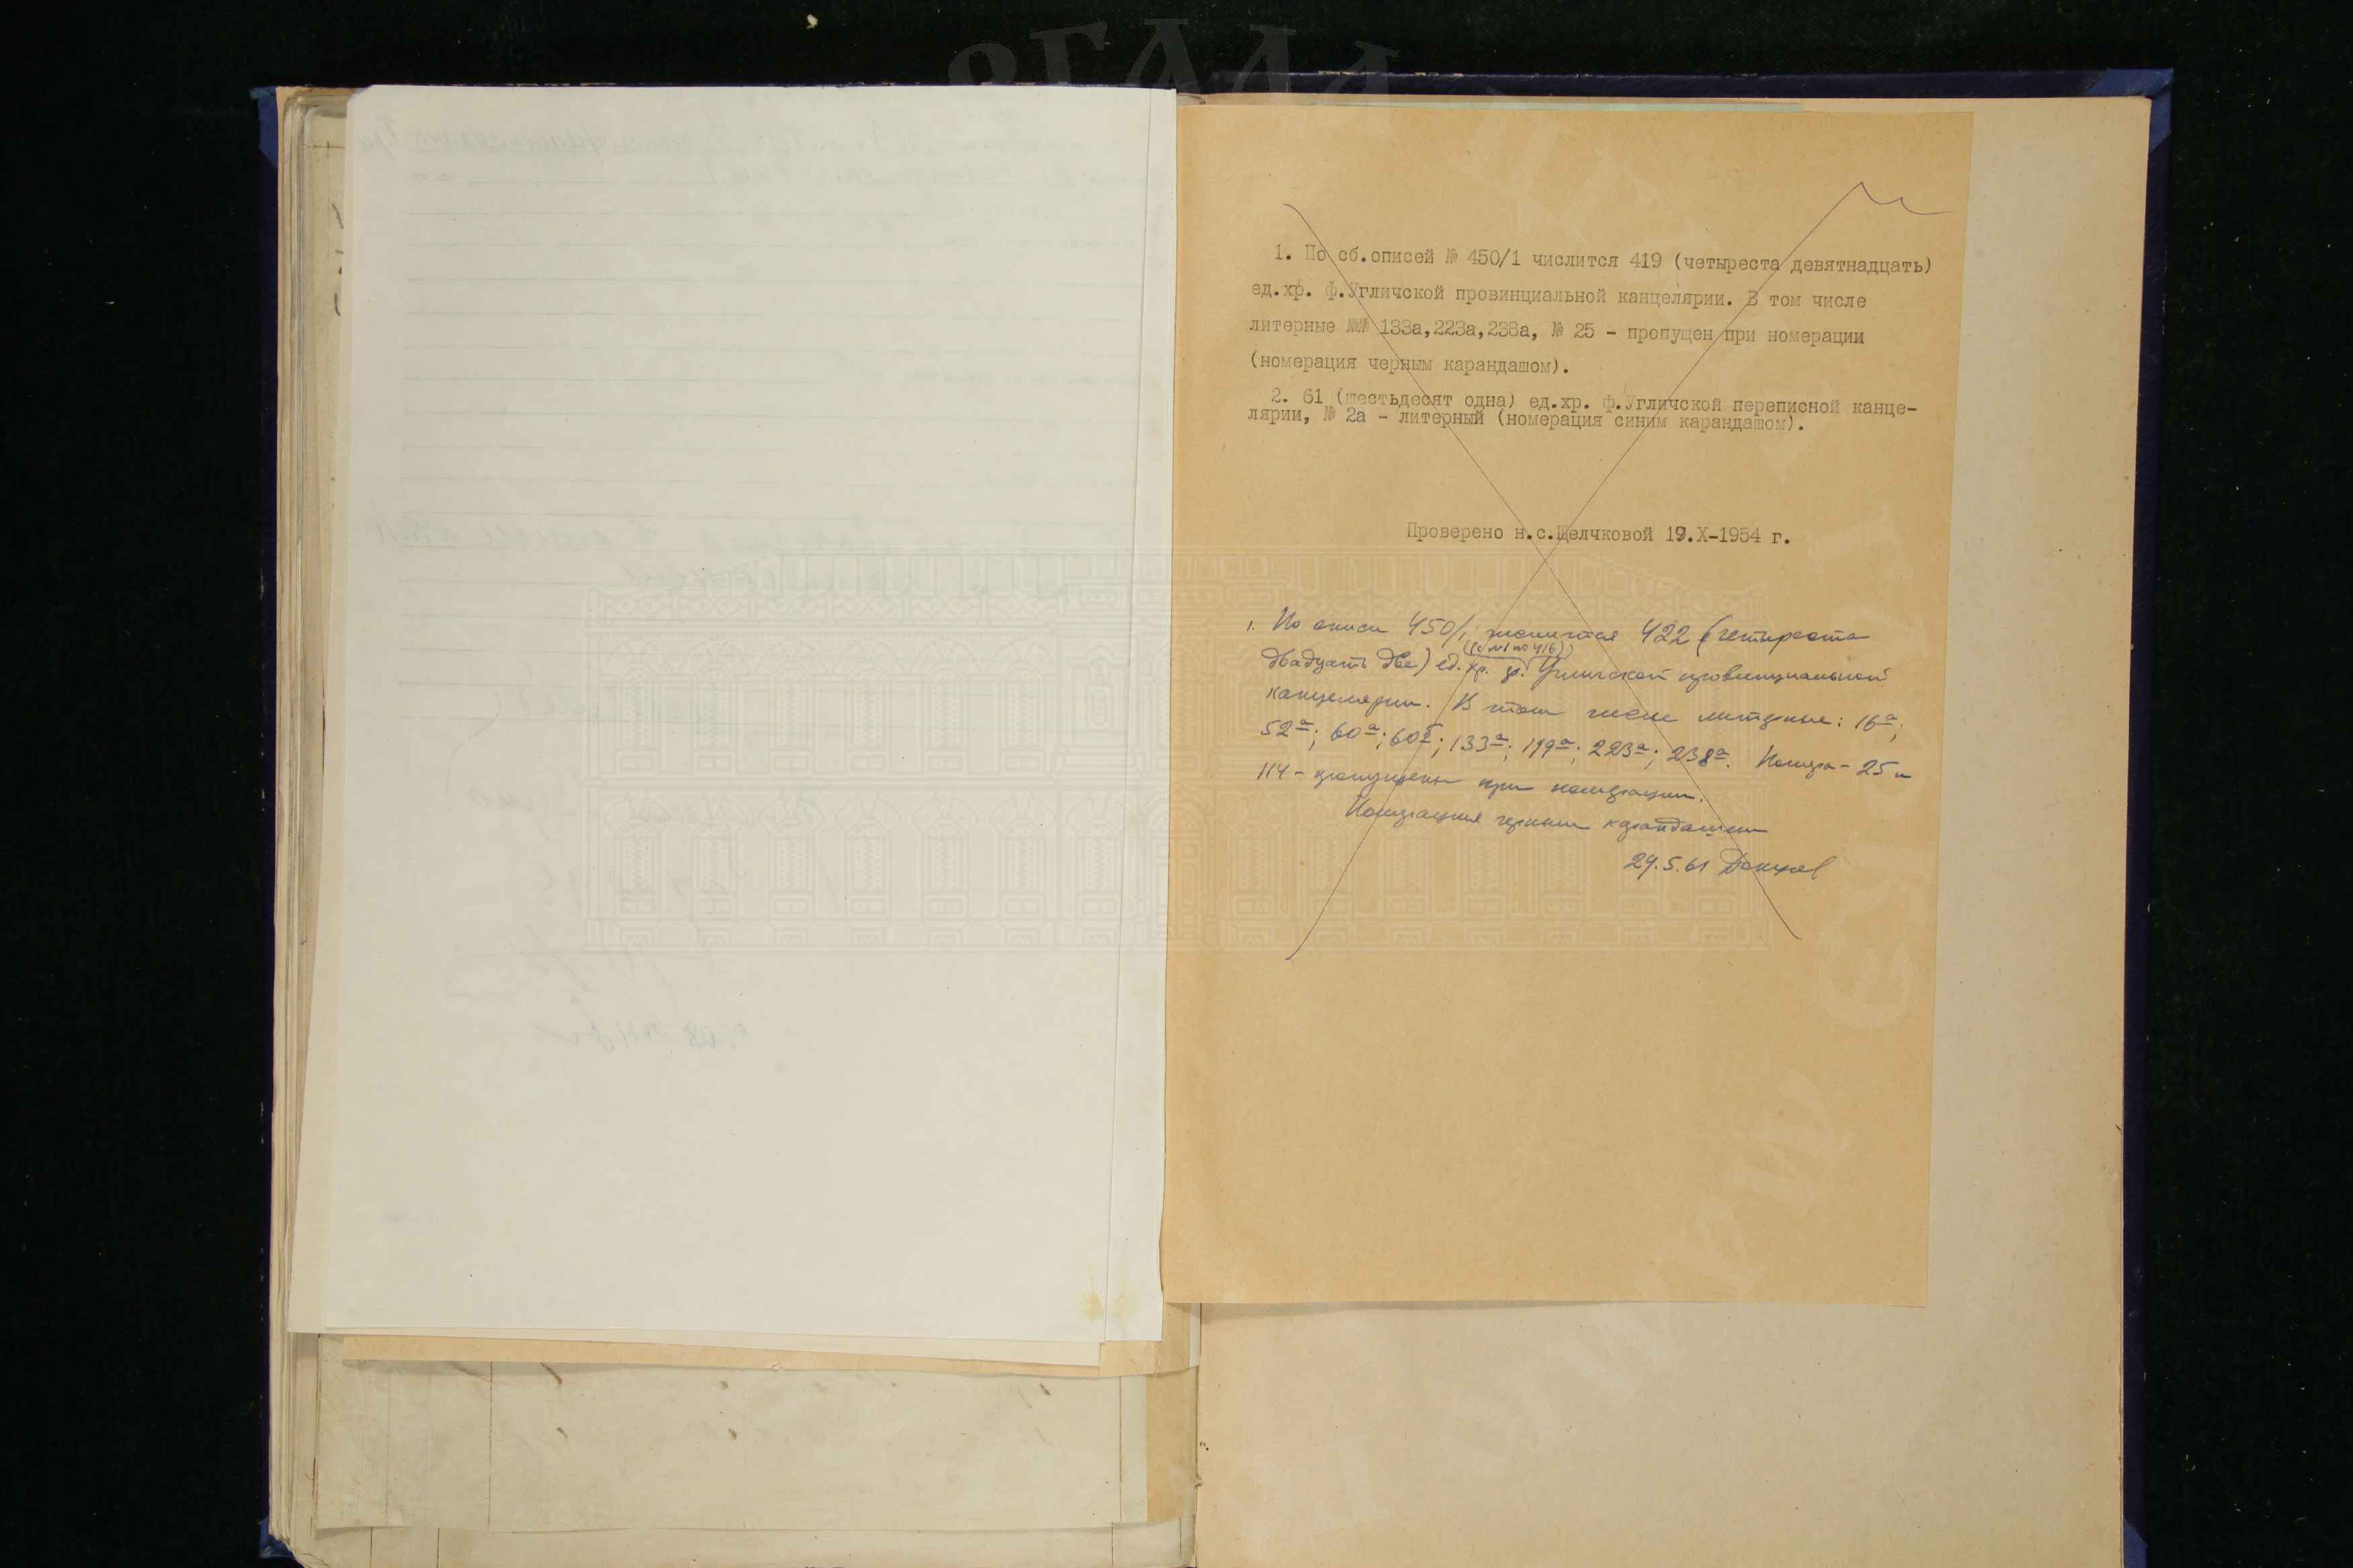 1. По сб.описей № 450/1 числится 419 (четыреста девятнадцать)
ед.хр. Ф.Угличской провинциальной канцелярии. В том числе
литерные №№ 133а,223а,238а, № 25 - пропущен при номерации
(номерация черным карандашом).
2. 61 (шестьдесят одна) ед.хр. Ф.Угличской переписной канце-
лярии, № 2а - литерный (номерация синим карандашом).
Проверено н.с.Щелчковой 19.X-1954 г.
1. По описи 450/1 числится 422 (четыреста
(с №1 по 416)
двадцать две) ед. хр. ф. Угличской провинциальной
канцелярии. В том числе литерные: 16а;
52а; 60а; 60б; 133а; 199а; 223а; 238а. Номера - 25 и
114 - пропущены при номерации.
Номерация черным карандашом
29.5.61